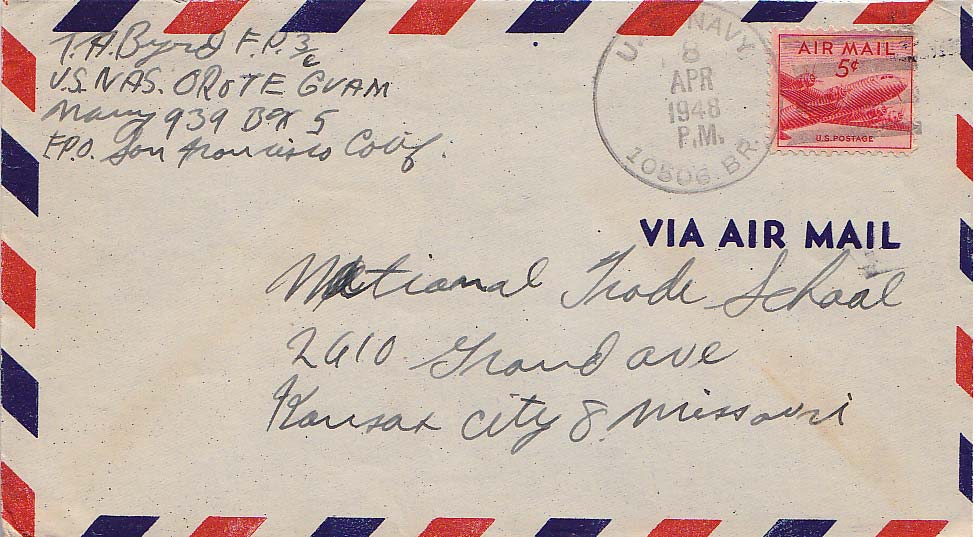 T.A. Byrd F.P. 3/c
U.S. NAS. OROTE GUAM
Navy 939 Box 5
F.P.O. San Francisco Calif.
U.S. NAVY
8
APR
1948
P.M.
10506. BR.
AIR MAIL
5¢
U.S. POSTAGE
VIA AIR MAIL
National Trade School
2610 Grand ave
Kansas City 8, Missouri